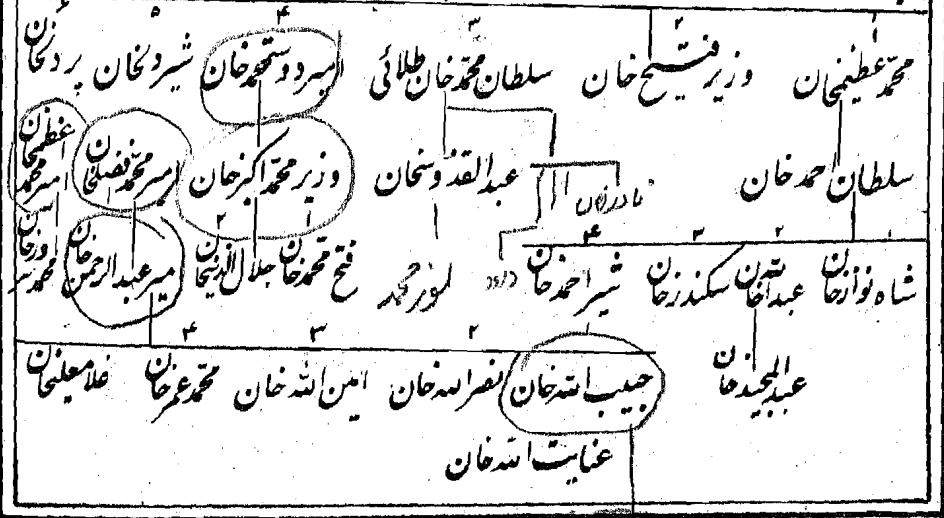 ۱ ۲ ۳ ۴ ۵ ۶
محمد عظیمخان وزیر فتح خان سلطان محمد خان طلائی امیر دوستمحمد خان شیردلخان پردلخان
سلطان احمد خان عبدالقدوسخان وزیر محمد اکبر خان امیر محمد افضلخان امیر محمد اعظمخان
۱ ۲ ۳ ۴ ۱ ۲
شاه نواز خان عبدالله خان سکندر خان شیر احمد خان داود نور محمد فتح محمد خان جلال الدینخان امیر عبدالرحمن خان
۲ ۳ ۴
عبدالمجید خان حبیب الله خان نصرالله خان امین الله خان محمد عمر خان غلامعلیخان
عنایت الله خان